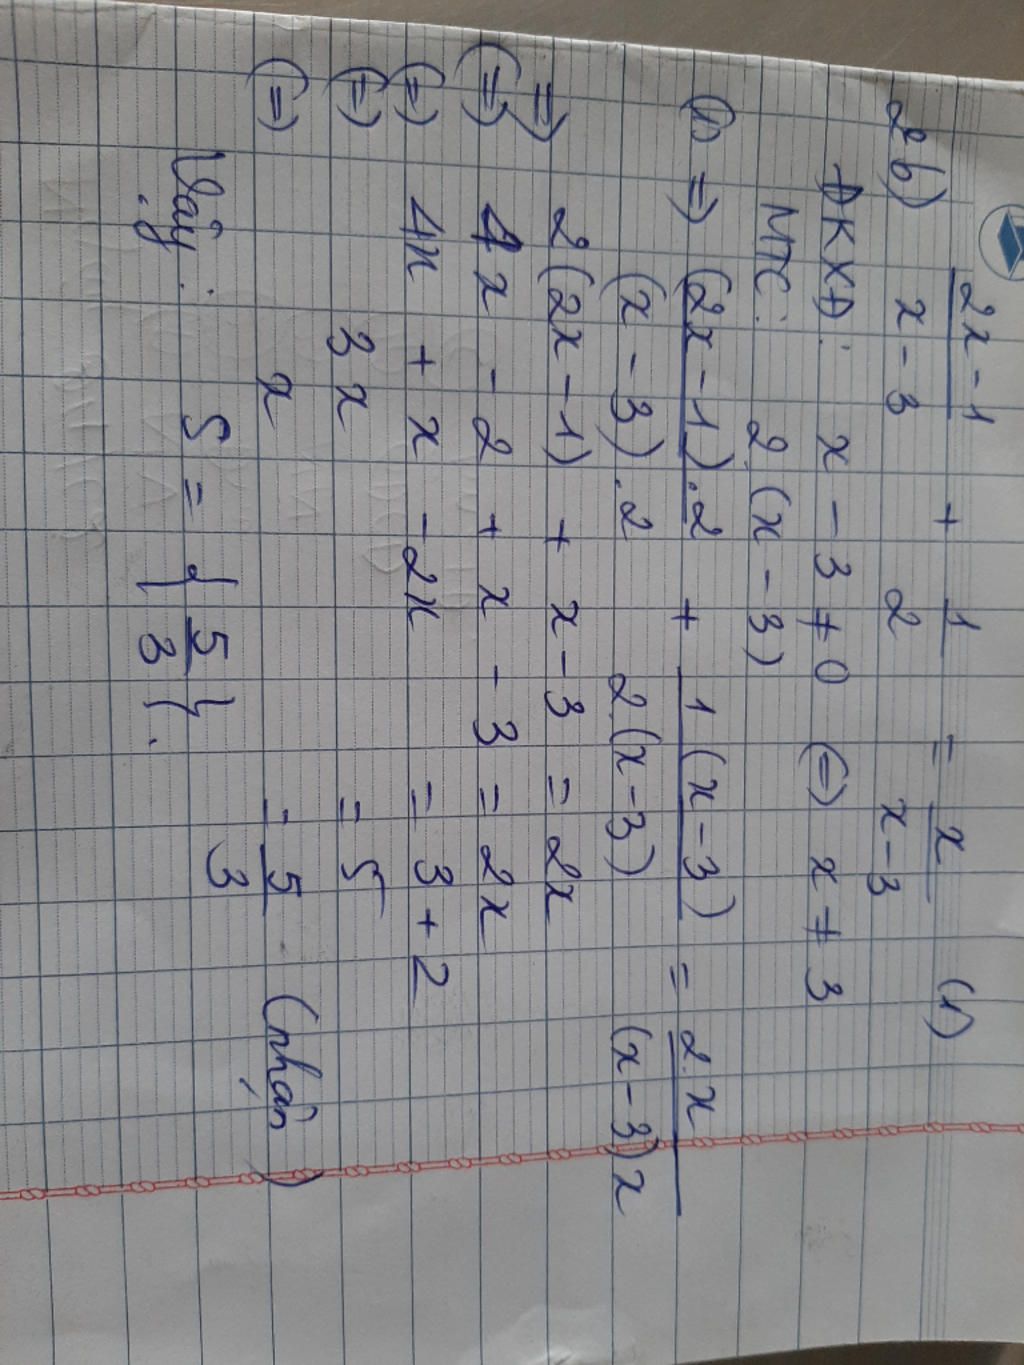 2x-1 + 1 = x (1)
2b) x-3 2 x-3
ĐKXĐ: x - 3 ≠ 0 (=) x ≠ 3
MTC: 2(x - 3)
(1) => (2x-1).2 + 1(x-3) = 2.x
(x-3).2 2(x-3) (x-3)2
=> 2(2x-1) + x-3 = 2x
(=) 4x - 2 + x - 3 = 2x
(=) 4x + x - 2x = 3+2
(=) 3x = 5
(=) x = 5 (nhận)
3
Vậy: S = { 5 }.
3